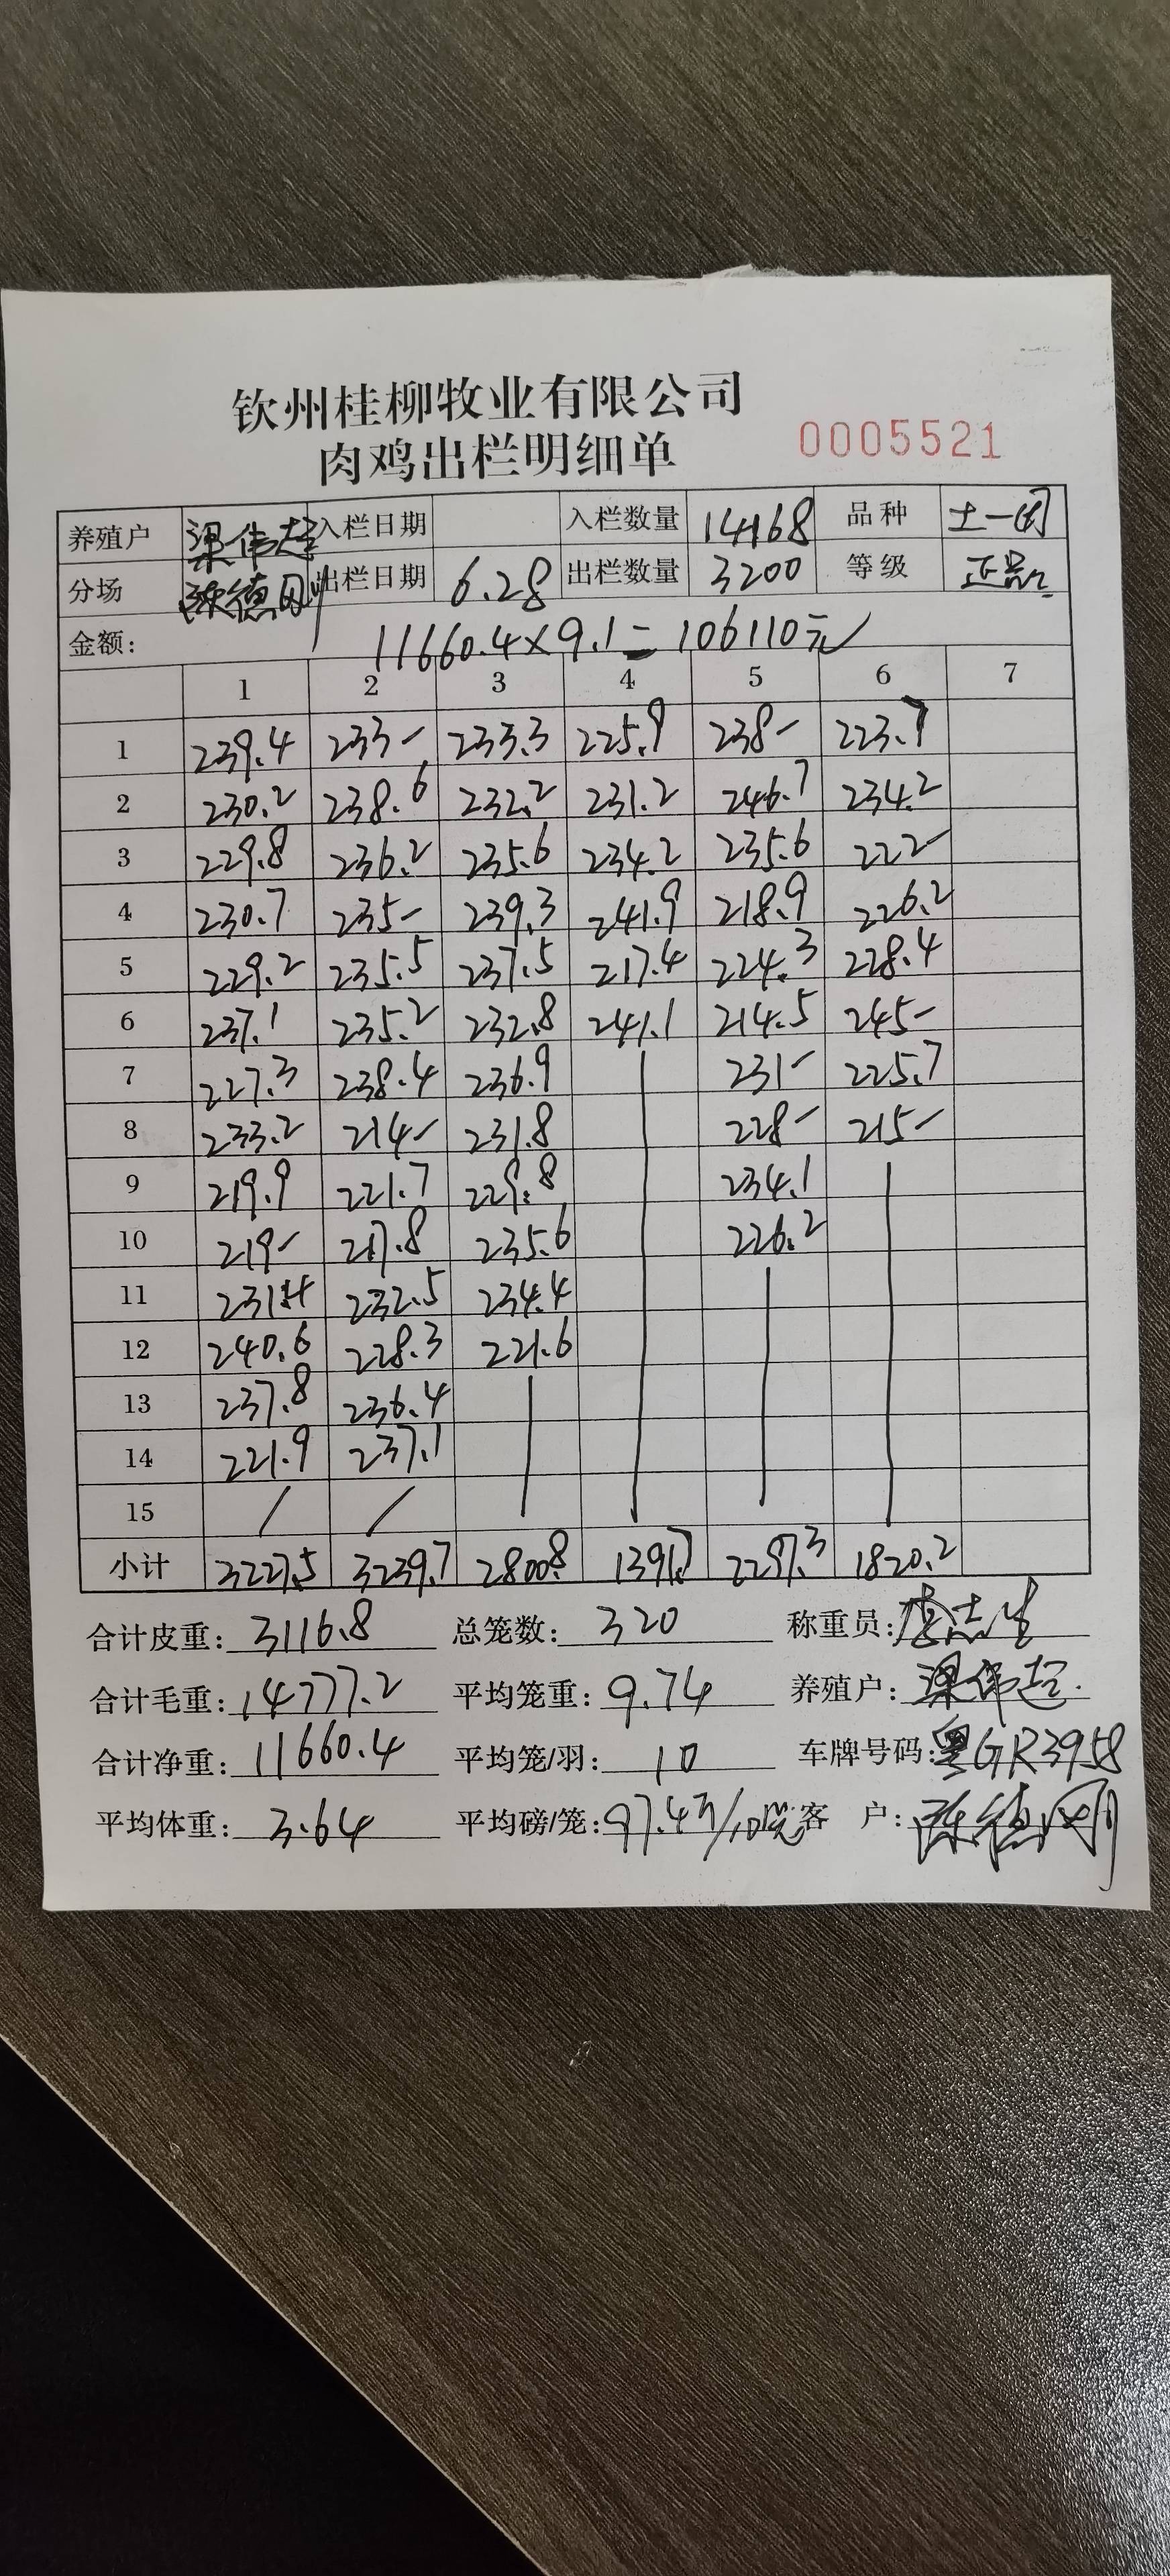 钦州桂柳牧业有限公司
肉鸡出栏明细单 0005521
养殖户 梁伟超 入栏日期 入栏数量 14168 品种 土一
分场 陈德刚 出栏日期 6.28 出栏数量 3200 等级 正品
金额: 11660.4×9.1=106110元
1 2 3 4 5 6 7
1 239.4 233- 233.3 225.9 238- 223.7
2 230.2 238.6 232.2 231.2 246.7 234.2
3 229.8 236.2 235.6 234.2 235.6 222-
4 230.7 235- 239.3 241.9 218.9 226.2
5 229.2 235.5 237.5 217.4 224.3 228.4
6 237.1 235.2 232.8 241.1 214.5 245-
7 227.3 238.4 236.9 231- 225.7
8 233.2 214- 231.8 228- 215-
9 219.9 221.7 229.8 234.1
10 219- 217.8 235.6 226.2
11 231.4 232.5 234.4
12 240.6 228.3 221.6
13 237.8 236.4
14 221.9 237.1
15 / /
小计 3227.5 3239.7 2800.8 1391.7 2297.3 1820.2
合计皮重: 3116.8 总笼数: 320 称重员:
合计毛重: 14777.2 平均笼重: 9.74 养殖户: 梁伟超
合计净重: 11660.4 平均笼/羽: 10 车牌号码: 粤GR3958
平均体重: 3.64 平均磅/笼: 97.4 客 户: 陈德刚